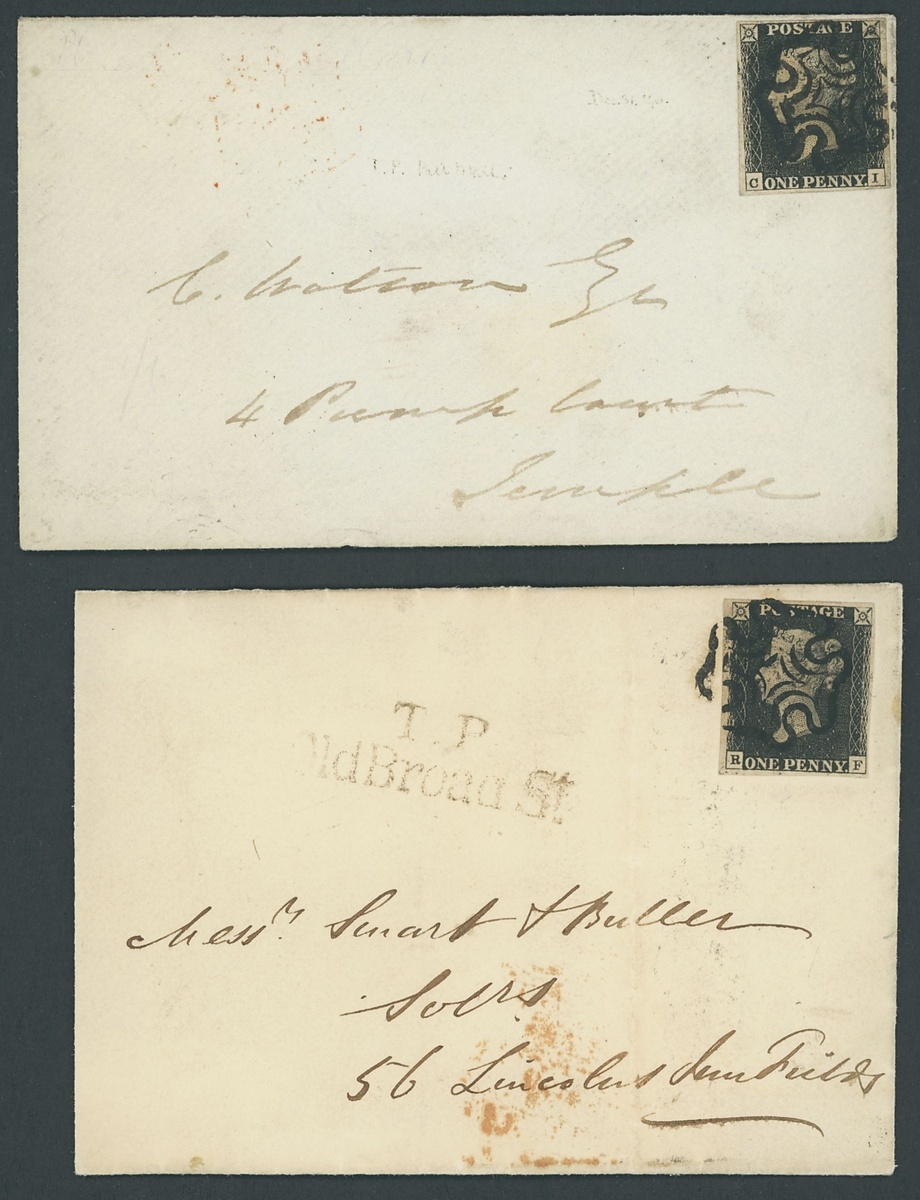 POSTAGE
C ONE PENNY. I
T.P.
C. Watson Esq
4 Pump Court
Temple
POSTAGE
R ONE PENNY. F
T.P
ld Broad St
Messrs. Smart & Buller
Solrs
56 Lincolns Inn Fields